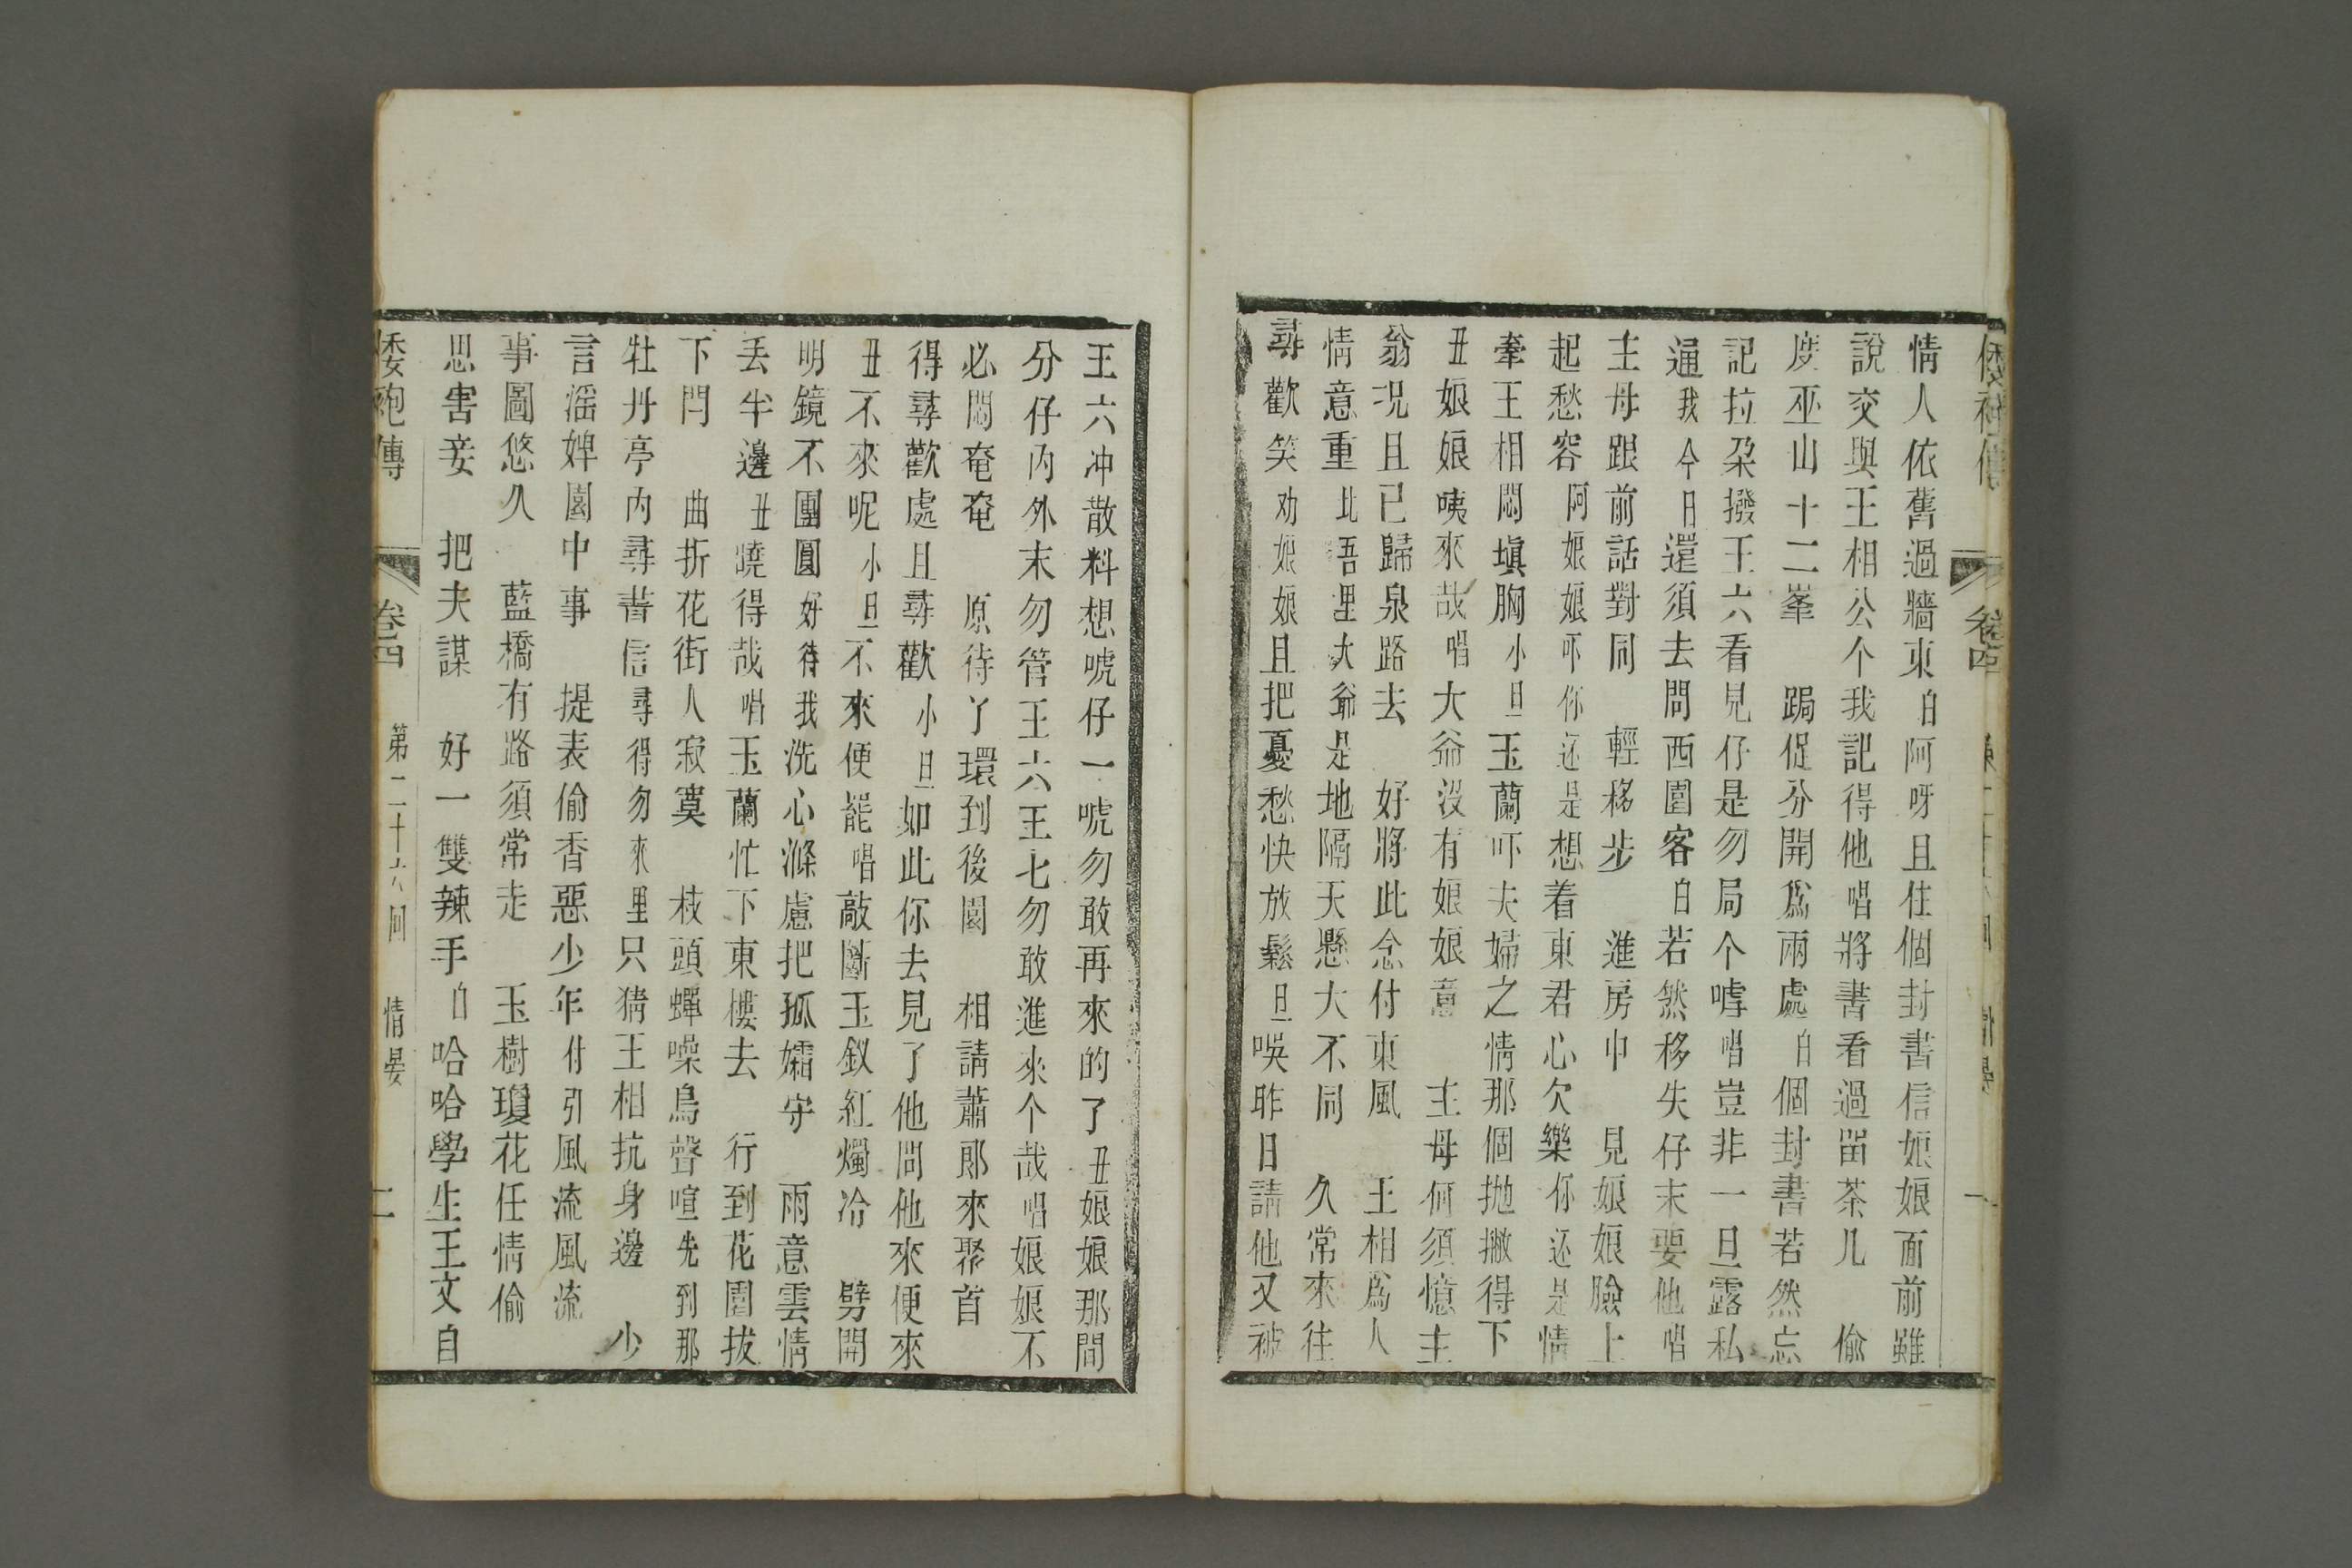 倭袍傳 卷四
情人依舊過牆東白阿呀且住個封書信娘娘面前雖
說交與王相公个我記得他唱將書看過畱茶几 偸
度巫山十二峯 跼促分開爲兩處白個封書若然忘
記拉朶撥王六看見仔是勿局个嘑唱豈非一旦露私
通我今日還須去問西園客白若然移失仔末要他唱
主母跟前話對同 輕移步 進房中 見娘娘臉上
起愁容阿娘娘吓你还是想着東君心欠樂你还是情
牽王相悶塡胸小旦玉蘭吓夫婦之情那個拋撇得下
丑娘娘咦來哉唱大爺沒有娘娘意 主母何須憶主
翁况且已歸泉路去 好將此念付東風 王相爲人
情意重比吾里大爺是地隔天懸大不同 久常來往
尋歡笑劝娘娘且把憂愁快放鬆旦唉昨日請他又被
王六冲散料想唬仔一唬勿敢再來的了丑娘娘那間
分仔內外末勿管王六王七勿敢進來个哉唱娘娘不
必悶奄奄 原待丫環到後園 相請蕭郞來聚首
得尋歡處且尋歡小旦如此你去見了他問他來便來
丑不來呢小旦不來便罷唱敲斷玉釵紅燭冷 劈開
明鏡不團圓好待我洗心滌慮把孤孀守 雨意雲情
丟半邊丑曉得哉唱玉蘭忙下東樓去 行到花園拔
下閂 曲折花街人寂寞 枝頭蟬噪鳥聲喧先到那
牡丹亭內尋書信尋得勿來里只猜王相抗身邊 少
言滛婢園中事 提表偷香惡少年付引風流風流
事圖悠久 藍橋有路須常走 玉樹瓊花任情偷
思害妾 把夫謀 好一雙辣手白哈哈學生王文自
倭袍傳 卷四 第二十六囘 情晏 二